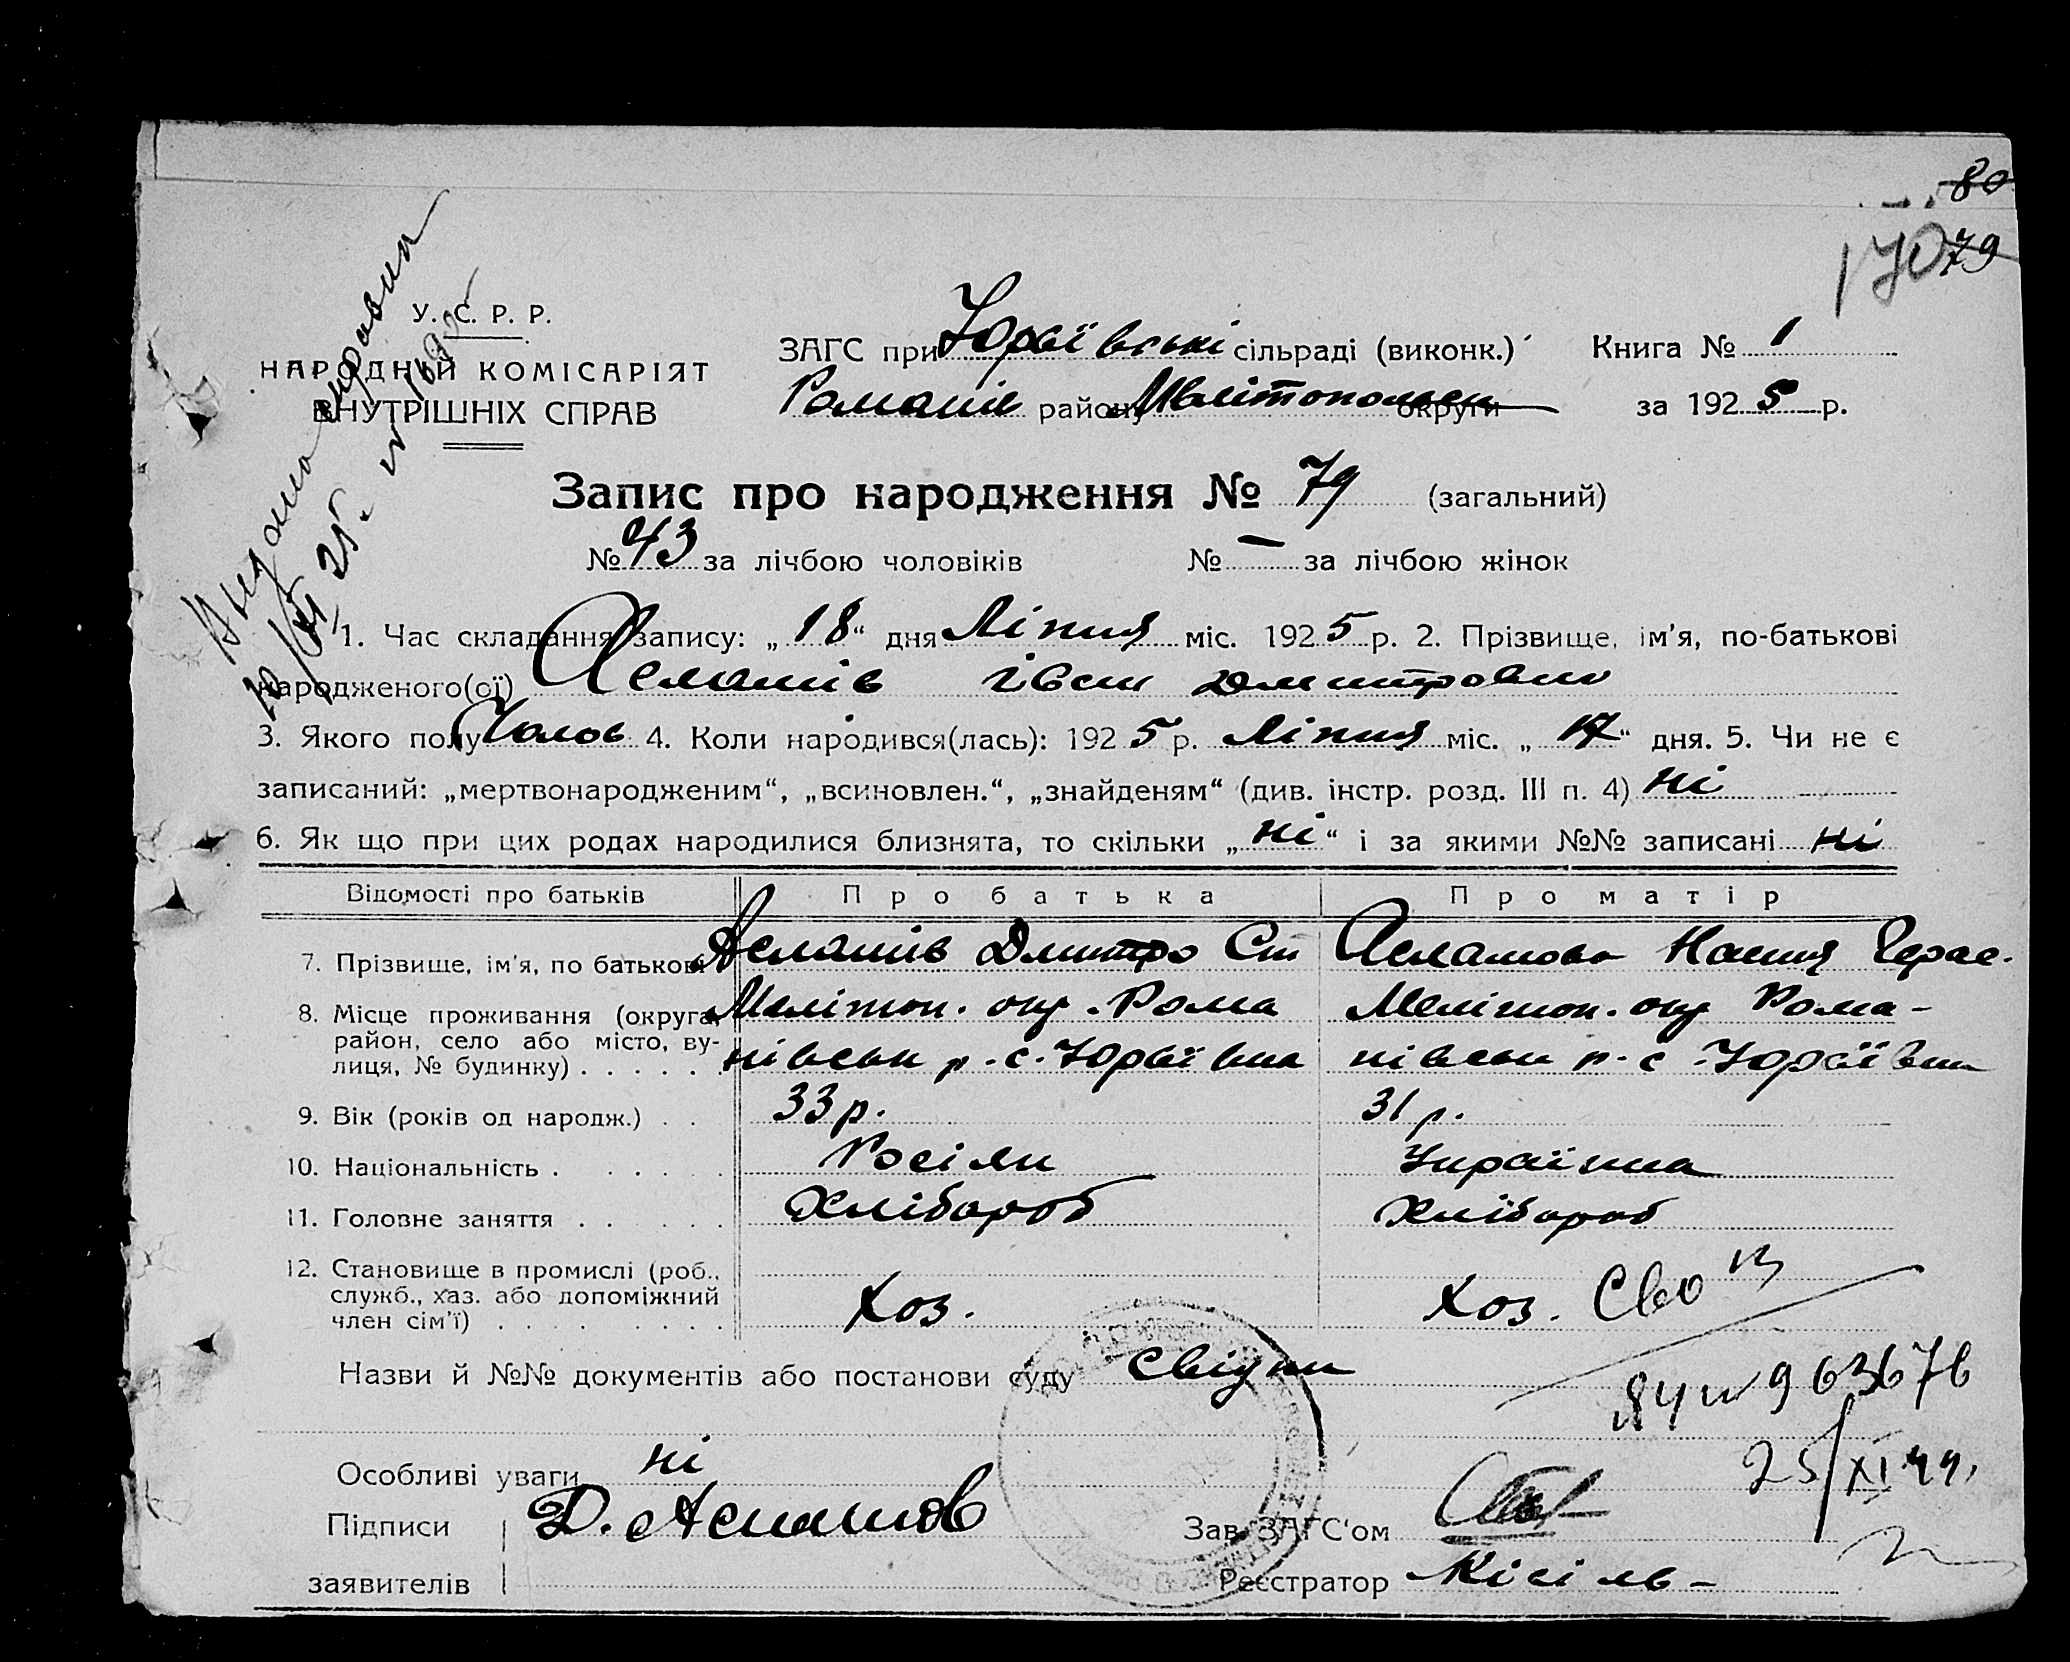 80
170 79
У. С. Р. Р.
НАРОДНЫЙ КОМІСАРІЯТ
ВНУТРІШНІХ СПРАВ
ЗАГС при Юрʼївські сільраді (виконк.) Книга № 1
району округи за 1925 р.
Запис про народження № 79 (загальний)
№ 43 за лічбою чоловіків № — за лічбою жінок
1. Час складання запису: „18“ дня Ліпня міс. 1925 р. 2. Прізвище, ім'я, по-батькові
народженого(ої)
3. Якого полу Чолов 4. Коли народився(лась): 1925 р. Ліпня міс. „17“ дня. 5. Чи не є
записаний: „мертвонародженим“, „всиновлен.“, „знайденям“ (див. інстр. розд. III п. 4) ні
6. Як що при цих родах народилися близнята, то скільки „ні“ і за якими №№ записані ні
Відомості про батьків Про батька Про матір
7. Прізвище, ім'я, по батькові Дмитро
8. Місце проживання (округа, Мелітоп. окр. Рома Мелітоп. окр Рома-
район, село або місто, ву- нівськ р. с. нівськ р. с
лиця, № будинку) . . . . . .
9. Вік (років од народж.) . . 33 р. 31 р.
10. Національність . . . . . . Росіян Українка
11. Головне заняття . . . . . Хлібороб Хлібороб
12. Становище в промислі (роб.,
служб., хаз. або допоміжний Хоз. Хоз.
член сім'ї) . . . . . . . . .
Назви й №№ документів або постанови суду свідки
25/XI 44.
Особливі уваги ні
Підписи Зав. ЗАГС'ом
заявителів Реєстратор Кісіль